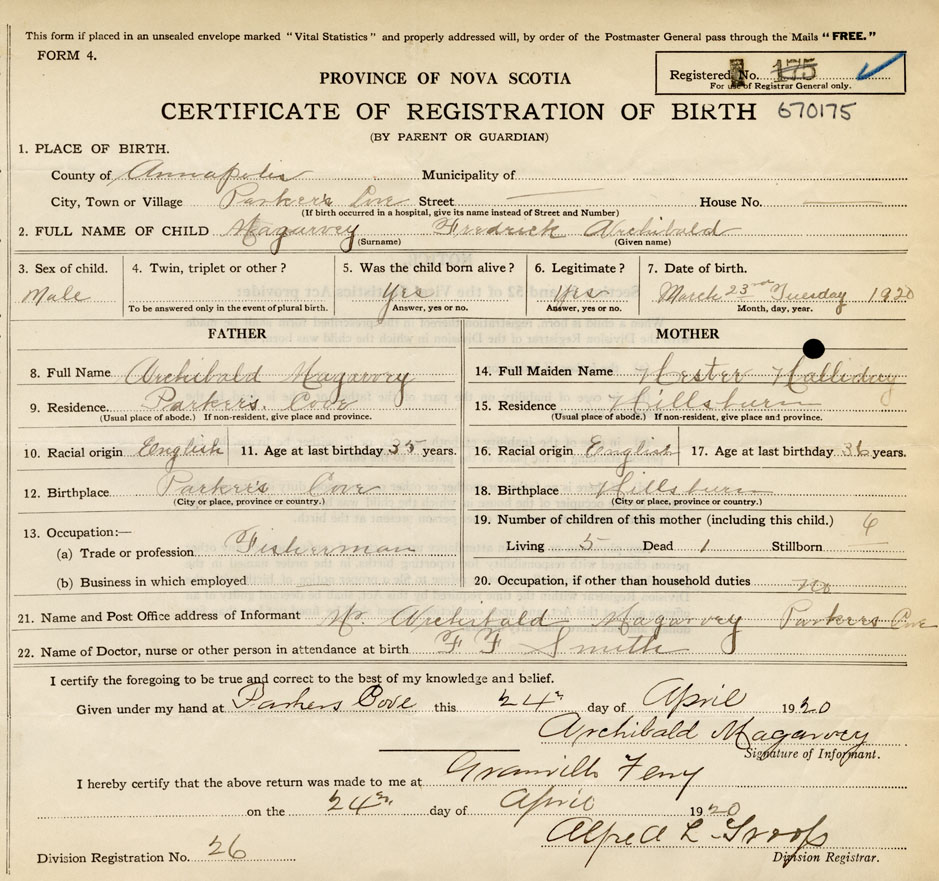 This form if placed in an unsealed envelope marked "Vital Statistics" and properly addressed will, by order of the Postmaster General pass through the Mails "FREE."
FORM 4.
PROVINCE OF NOVA SCOTIA
Registered, No. 175
For use of Registrar General only.
CERTIFICATE OF REGISTRATION OF BIRTH 670175
(BY PARENT OR GUARDIAN)
1. PLACE OF BIRTH.
County of Annapolis Municipality of
City, Town or Village Parker's Cove Street House No.
(If birth occurred in a hospital, give its name instead of Street and Number)
2. FULL NAME OF CHILD Magarvey Fredrick Archibald
(Surname) (Given name)
3. Sex of child. 4. Twin, triplet or other? 5. Was the child born alive? 6. Legitimate? 7. Date of birth.
Male Yes Yes March 23rd Tuesday 1920
To be answered only in the event of plural birth. Answer, yes or no. Answer, yes or no. Month, day, year.
FATHER MOTHER
8. Full Name Archibald Magarvey 14. Full Maiden Name Hester Halliday
9. Residence Parker's Cove 15. Residence Hillsburn
(Usual place of abode.) If non-resident, give place and province. (Usual place of abode.) If non-resident, give place and province.
10. Racial origin English 11. Age at last birthday 35 years. 16. Racial origin English 17. Age at last birthday years.
12. Birthplace Parker's Cove 18. Birthplace Hillsburn
(City or place, province or country.) (City or place, province or country.)
13. Occupation:— 19. Number of children of this mother (including this child.) 6
(a) Trade or profession Fisherman Living 5 Dead 1 Stillborn
(b) Business in which employed 20. Occupation, if other than household duties no
21. Name and Post Office address of Informant Mr. Archibald Magarvey Parkers Cove
22. Name of Doctor, nurse or other person in attendance at birth F F Smith
I certify the foregoing to be true and correct to the best of my knowledge and belief.
Given under my hand at Parkers Cove this 24 day of April 1920
Archibald Magarvey
Signature of Informant.
I hereby certify that the above return was made to me at Granville Ferry
on the 24 day of April 1920
Alfred L.
Division Registration No. 26 Division Registrar.